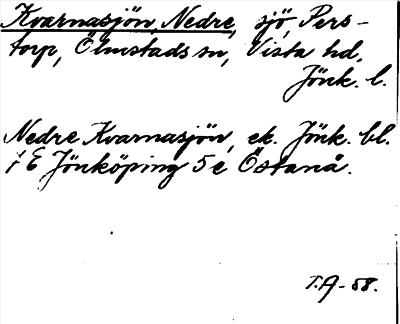 Kvarnasjön, Nedre, sjö, Pers-
torp, Ölmstads sn, Vista hd,
Jönk. l.
Nedre Kvarnasjön, ek. Jönk. bl.
7 E Jönköping 5 e Östanå.
T.A-58.